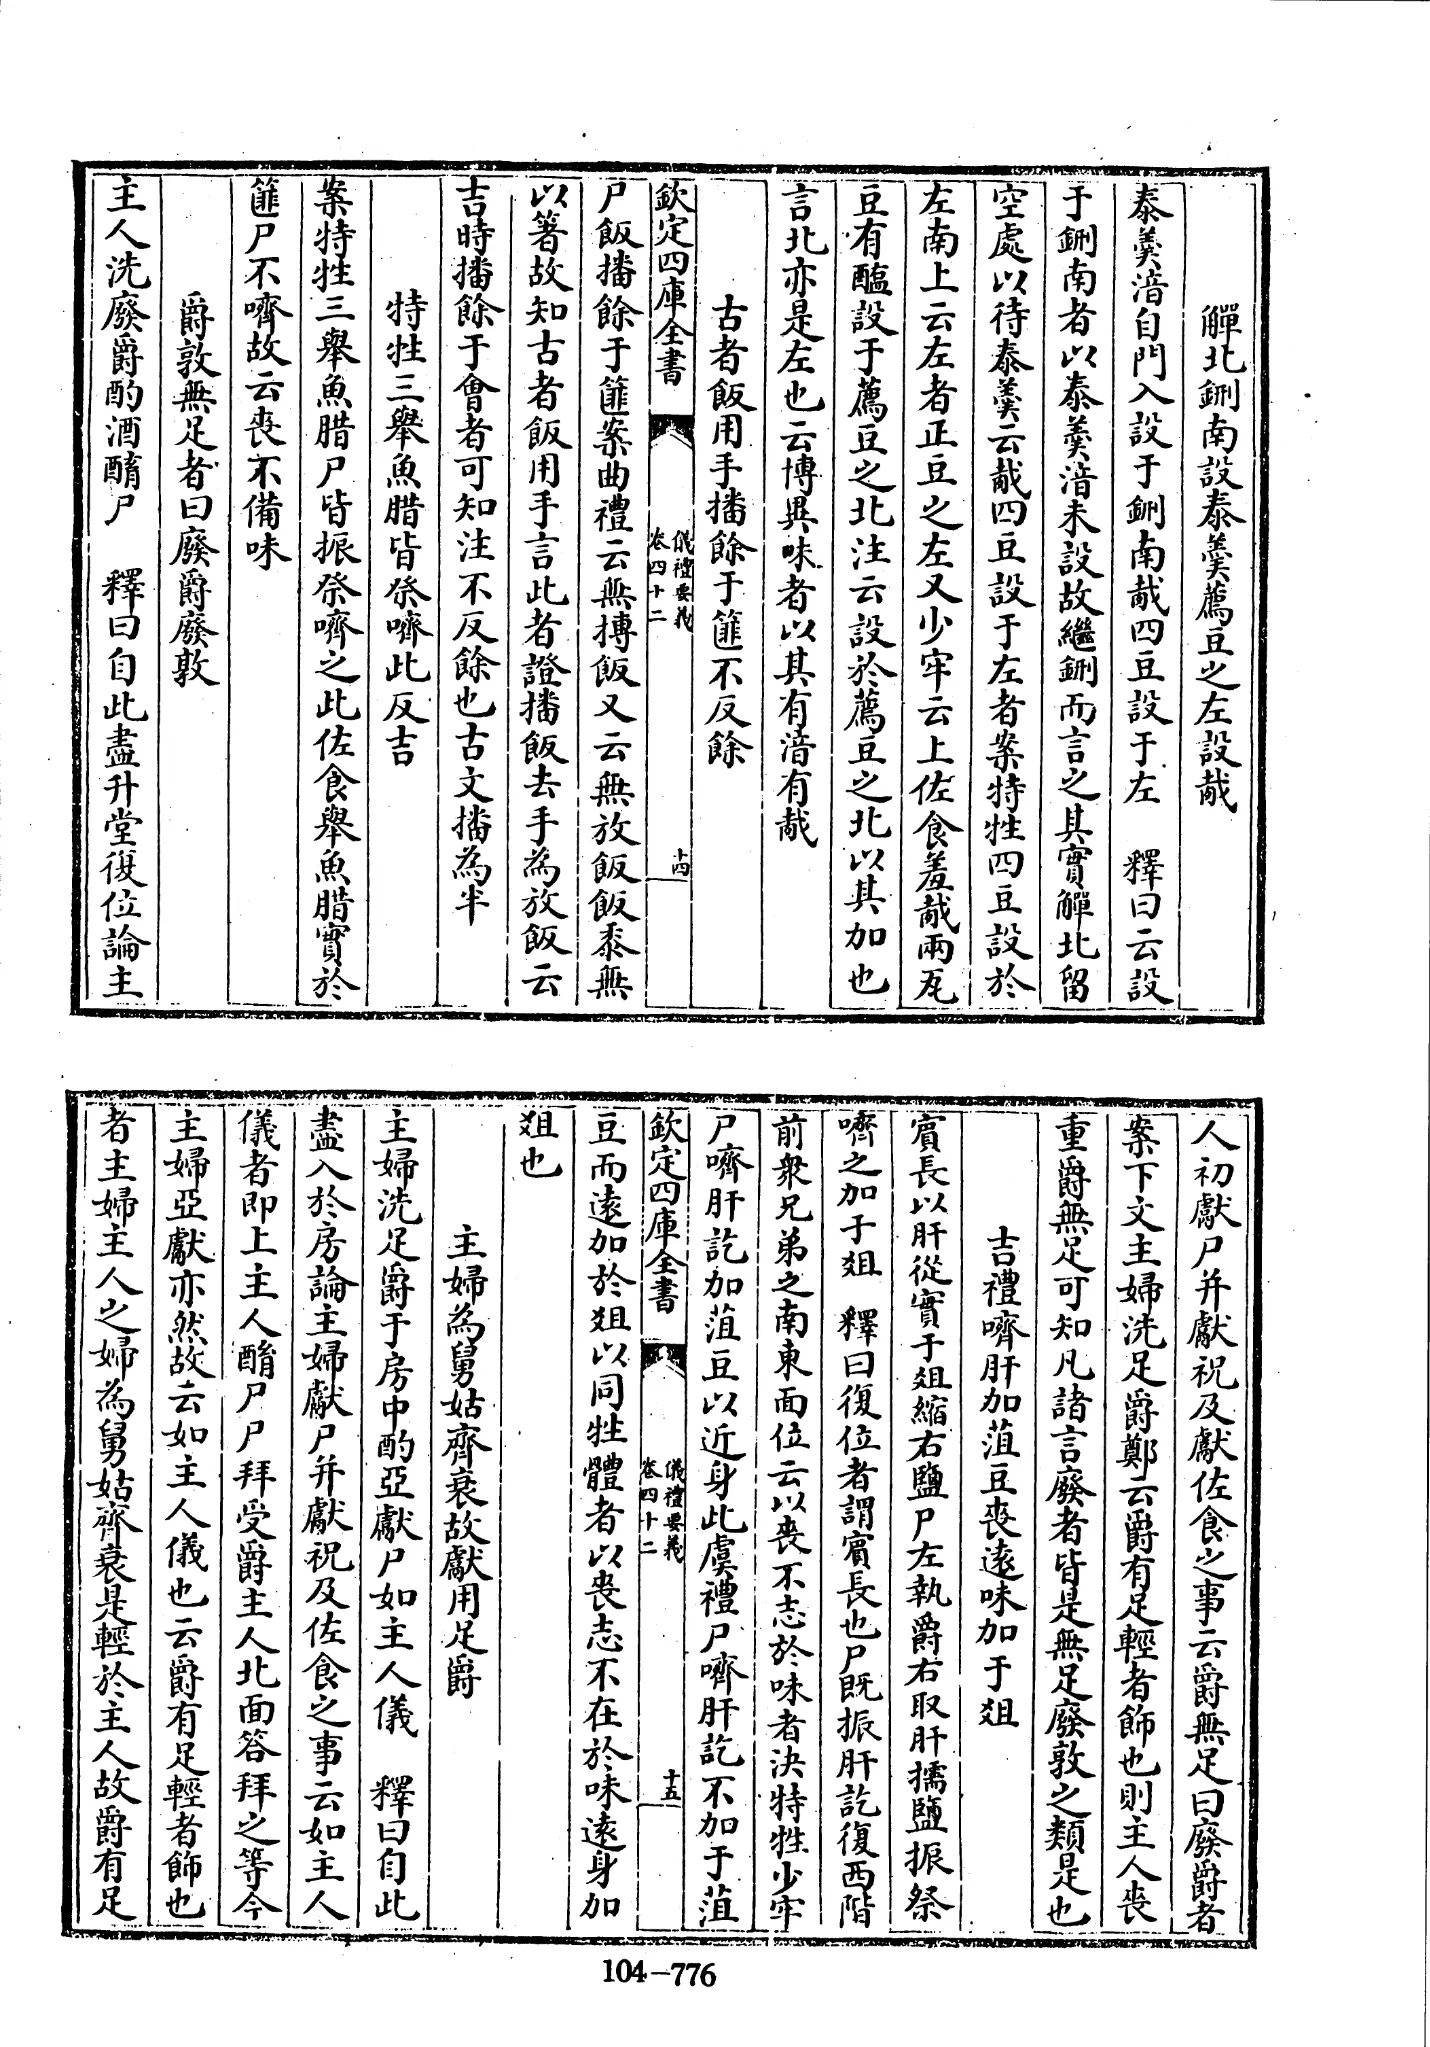 觶北鉶南設泰羮薦豆之左設胾
泰羮湆自門入設于鉶南胾四豆設于左　釋曰云設
于鉶南者以泰羮湆未設故繼鉶而言之其實觶北留
空處以待泰羮云胾四豆設于左者案特牲四豆設於
左南上云左者正豆之左又少牢云上佐食羞胾兩瓦
豆有醢設于薦豆之北注云設於薦豆之北以其加也
言北亦是左也云博異味者以其有湆有胾
古者飯用手播餘于篚不反餘
欽定四庫全書
儀禮要義
卷四十二
十四
尸飯播餘于篚案曲禮云無摶飯又云無放飯飯黍無
以箸故知古者飯用手言此者證播飯去手為放飯云
吉時播餘于會者可知注不反餘也古文播為半
特牲三舉魚腊皆祭嚌此反吉
案特牲三舉魚腊尸皆振祭嚌之此佐食舉魚腊實於
篚尸不嚌故云喪不備味
爵敦無足者曰廢爵廢敦
主人洗廢爵酌酒酳尸　釋曰自此盡升堂復位論主
人初獻尸并獻祝及獻佐食之事云爵無足曰廢爵者
案下文主婦洗足爵鄭云爵有足輕者飾也則主人喪
重爵無足可知凡諸言廢者皆是無足廢敦之類是也
吉禮嚌肝加菹豆喪遠味加于爼
賔長以肝從實于爼縮右鹽尸左執爵右取肝擩鹽振祭
嚌之加于爼　釋曰復位者謂賔長也尸既振肝訖復西階
前衆兄弟之南東面位云以喪不志於味者決特牲少牢
尸嚌肝訖加菹豆以近身此虞禮尸嚌肝訖不加于菹
欽定四庫全書
儀禮要義
卷四十二
十五
豆而遠加於爼以同牲體者以喪志不在於味遠身加
爼也
主婦為舅姑齊衰故獻用足爵
主婦洗足爵于房中酌亞獻尸如主人儀　釋曰自此
盡入於房論主婦獻尸并獻祝及佐食之事云如主人
儀者即上主人酳尸尸拜受爵主人北面答拜之等今
主婦亞獻亦然故云如主人儀也云爵有足輕者飾也
者主婦主人之婦為舅姑齊衰是輕於主人故爵有足
104-776